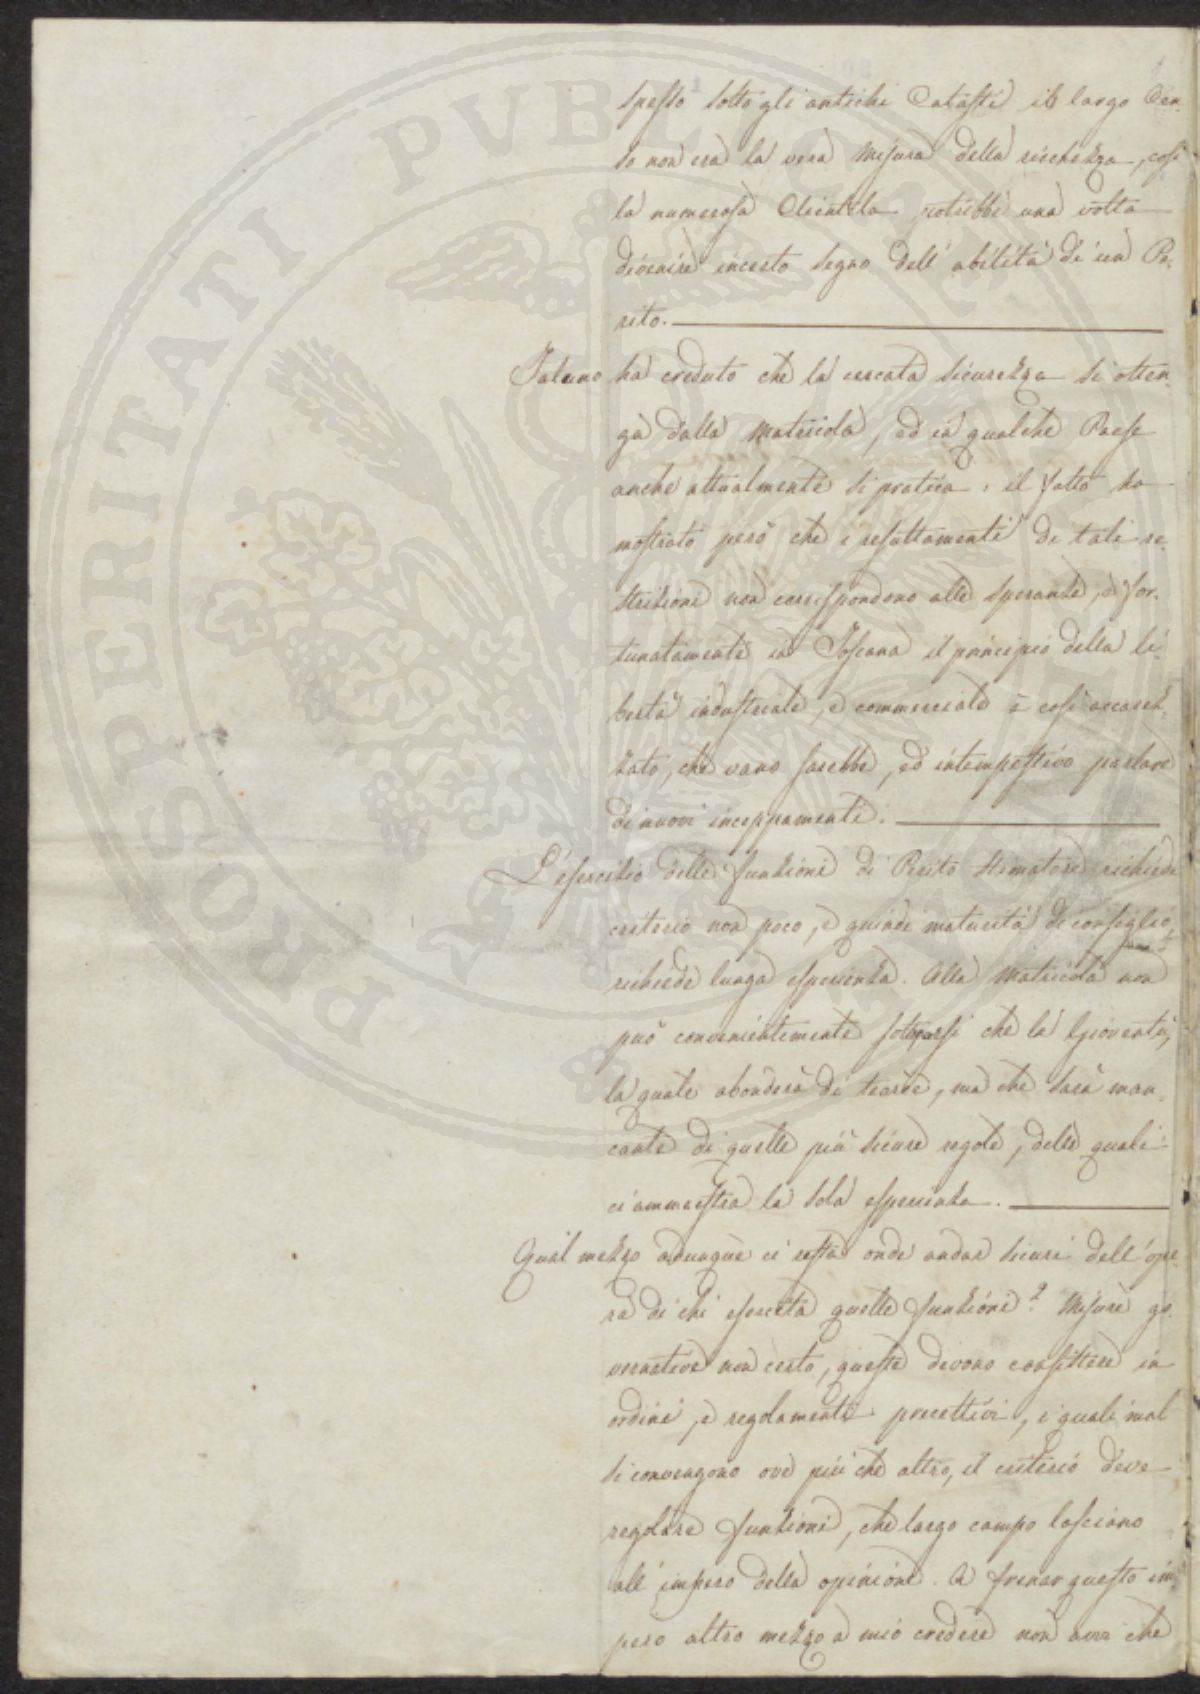 spesso sotto gli antichi Catasti il largo Cen-
so non era la vera misura della ricchezza, così
la numerosa Clientela potrebbe una volta
divenire incerto segno dell'abilità di un Pe-
rito.
Taluno ha creduto che la cercata sicurezza si otten-
ga dalla Matricola, ed in qualche Paese
anche attualmente si pratica. il fatto ha
mostrato però che i resultamenti di tali re-
strizioni non corrispondono alle speranze, e for-
tunatamente in Toscana il principio della li-
bertà industriale, e commerciale è così accarez-
zato, che vano sarebbe, ed intempestivo parlare
di nuovi inceppamenti.
L'esercizio delle funzioni di Perito stimatore richiede
criterio non poco, e quindi maturità di consiglio,
richiede lunga esperienza. Alla Matricola non
può convenientemente sottoporsi che la Gioventù,
la quale abonderà di teorie, ma che sarà man-
cante di quelle più sicure regole, delle quali
ci ammaestra la sola esperienza.
Qual mezzo adunque ci resta onde andar sicuri dell'ope-
ra di chi esercita quelle funzioni? Misure go-
vernative non certo, queste devono consistere in
ordini, e regolamenti precettivi, i quali mal
si convengono ove più che altro, il criterio deve
regolare funzioni, che largo campo lasciano
all'impero della opinione. A frenar questo im-
pero altro mezzo a mio credere non avvi che
PROSPERITATI PUBLICAE